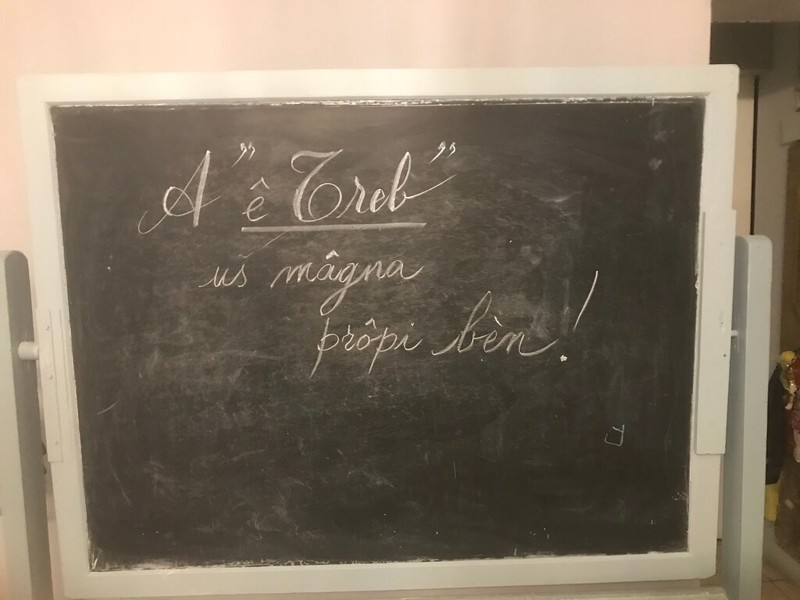 A "ê Treb"
uš mâgna
prôpi bèn!